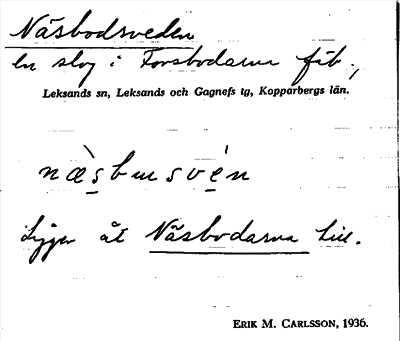 Näsbodsveden
en slog i Forsbodarna fäb.,
Leksands sn, Leksands och Gagnefs tg, Kopparbergs län.
næ̀s̲busvé̲n
Ligger åt Näsbodarna till.
ERIK M. CARLSSON, 1936.